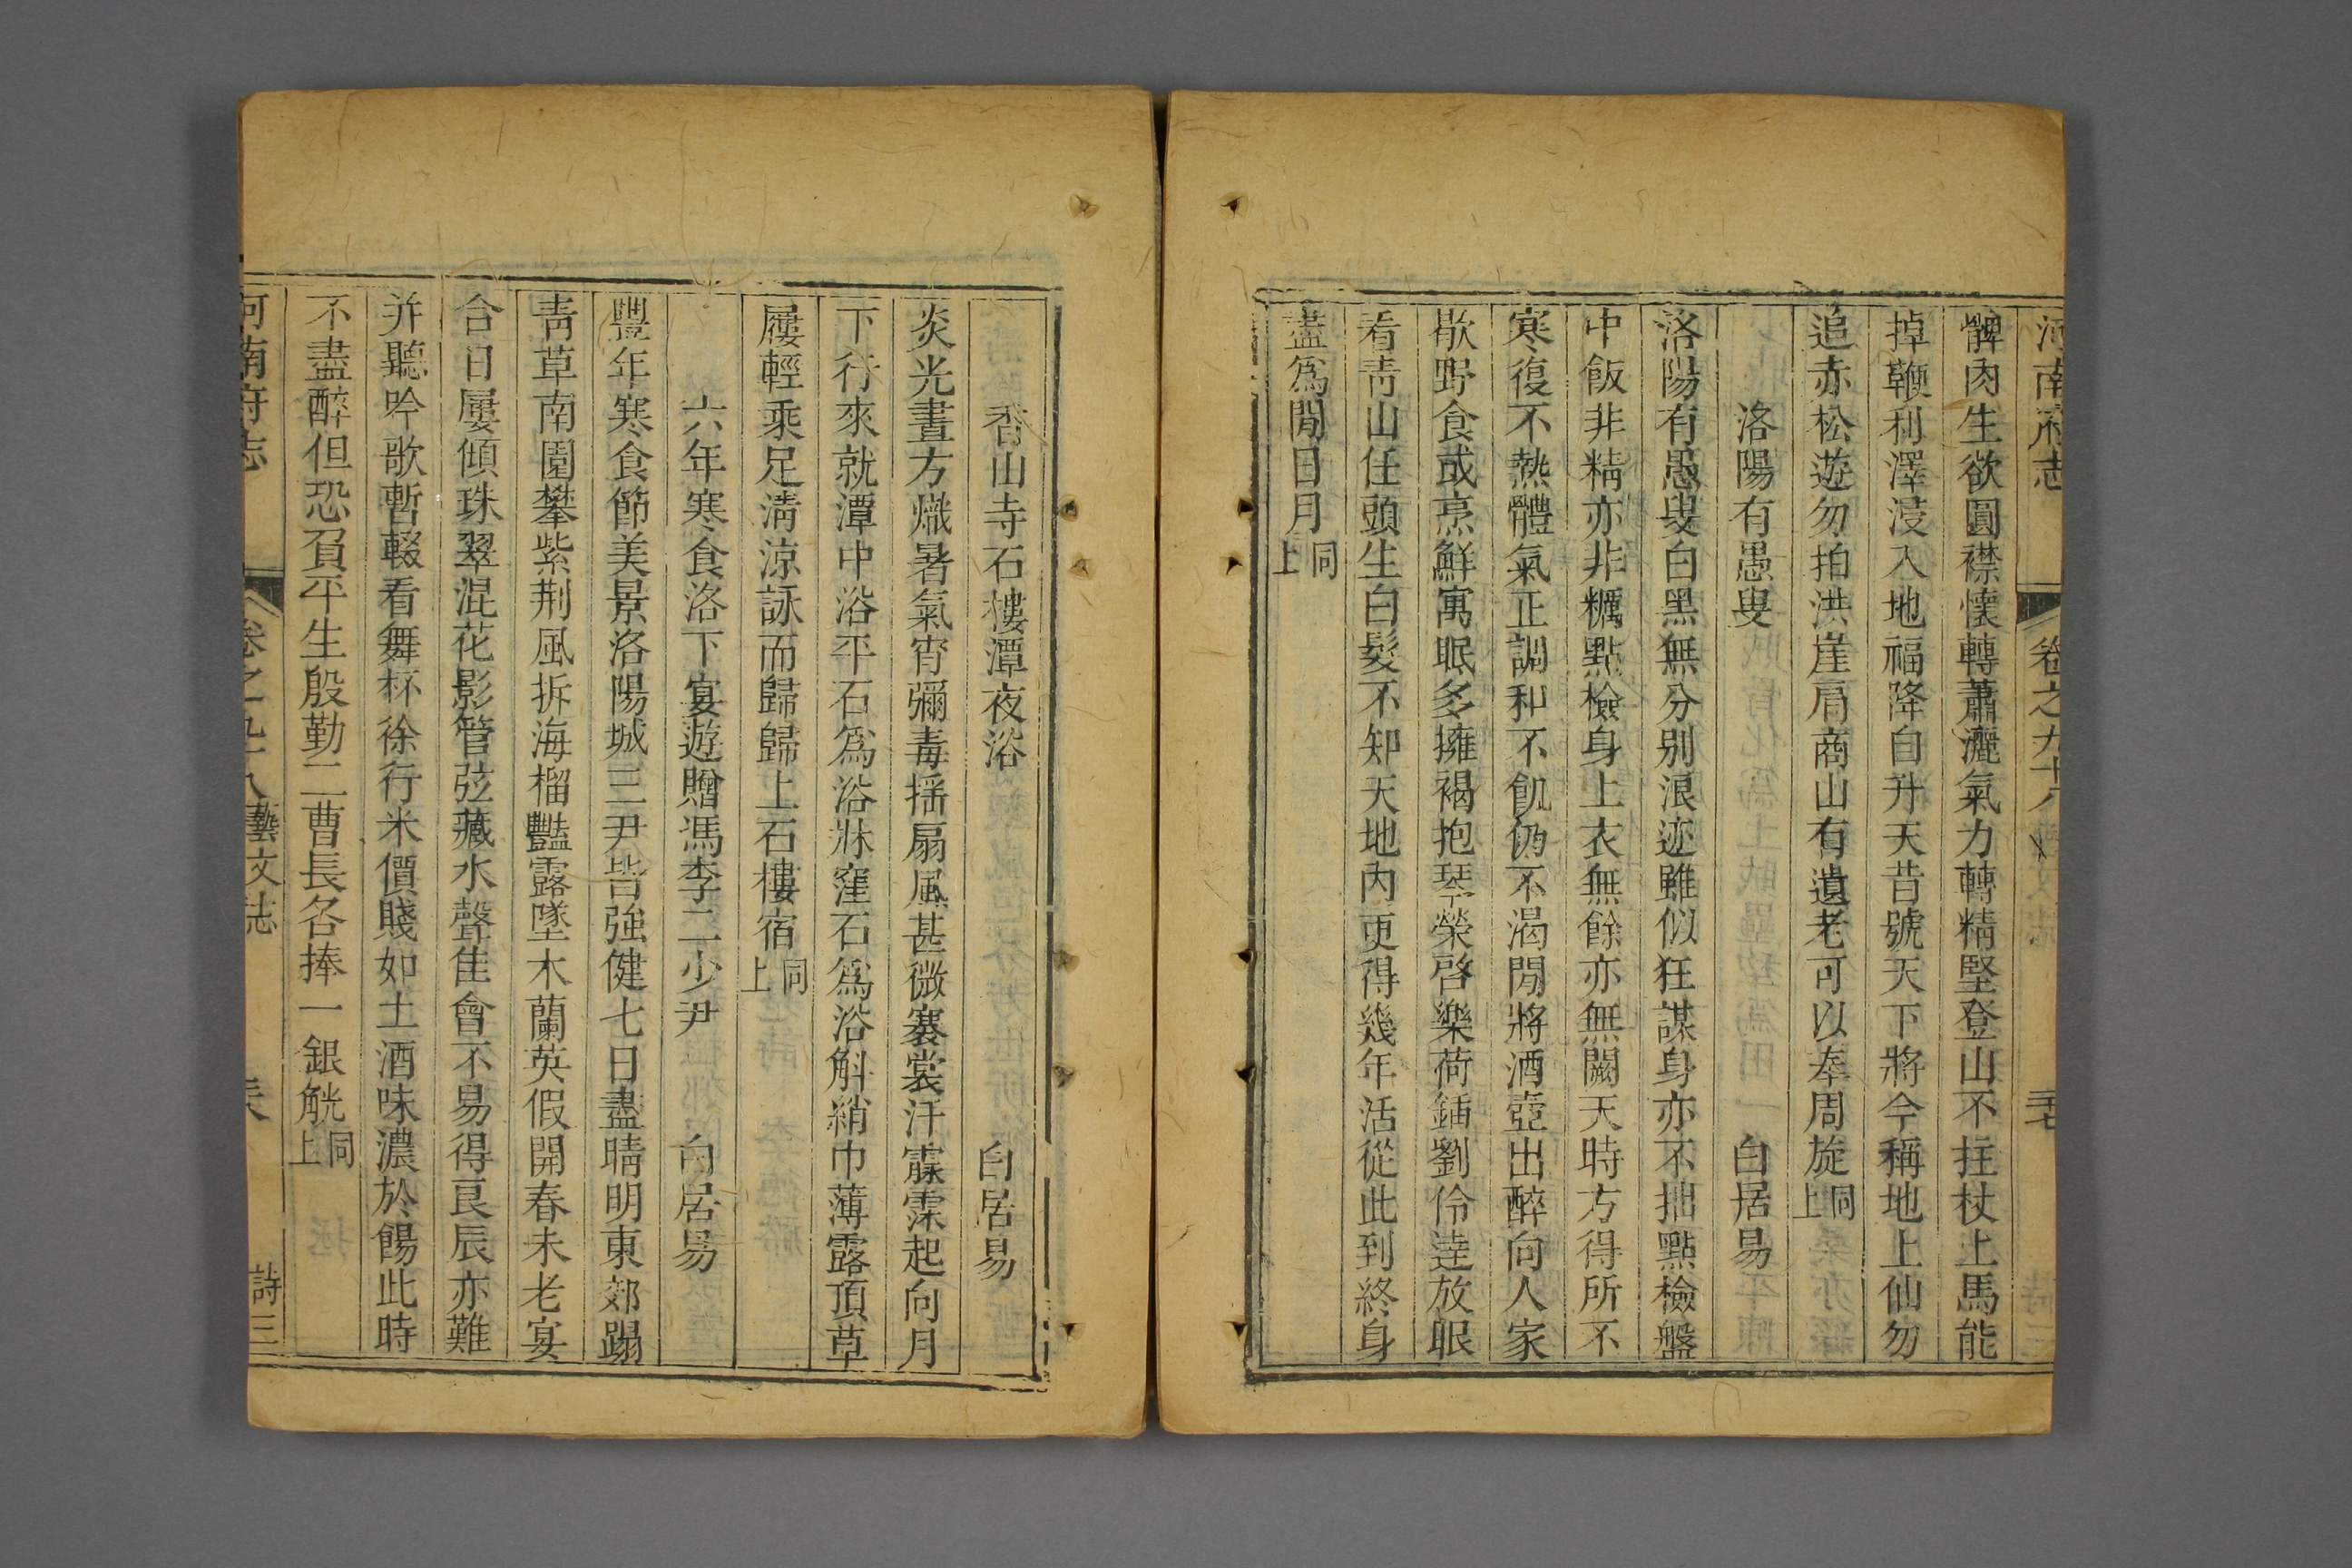 河南府志 卷之九十八 毛
髀肉生欲圓襟懷轉蕭灑氣力轉精堅登山不拄杖上馬能
掉鞭利澤浸入地福降自升天昔號天下將今稱地上仙勿
追赤松遊勿拍洪崖肩商山有遺老可以奉周旋同上
洛陽有愚叟 白居易
洛陽有愚叟白黑無分别浪迹雖似狂謀身亦不拙點檢盤
中飯非精亦非糲點檢身上衣無餘亦無闕天時方得所不
寒復不熱體氣正調和不飢仍不渴閒將酒壺出醉向人家
歇野食或烹鮮寓眠多擁褐抱琴榮啓樂荷鍤劉伶逹放眼
看青山任頭生白髮不知天地内更得幾年活從此到終身
盡爲閒日月同上
香山寺石樓潭夜浴 白居易
炎光晝方熾暑氣宵彌毒揺扇風甚微褰裳汗霢霂起向月
下行來就潭中浴平石爲浴牀窪石爲浴斛綃巾薄露頂草
屨輕乘足淸涼詠而歸歸上石樓宿同上
六年寒食洛下宴遊贈馮李二少尹 白居易
豐年寒食節美景洛陽城三尹皆強健七日盡晴明東郊蹋
靑草南園攀紫荆風拆海榴豔露墜木蘭英假開春未老宴
合日屢傾珠翠混花影管弦藏水聲佳會不易得良辰亦難
并聽吟歌暫輟看舞杯徐行米價賤如土酒味濃於餳此時
不盡醉但恐負平生殷勤二曹長各捧一銀觥同上
河南府志 卷之九十八 藝文志 詩三